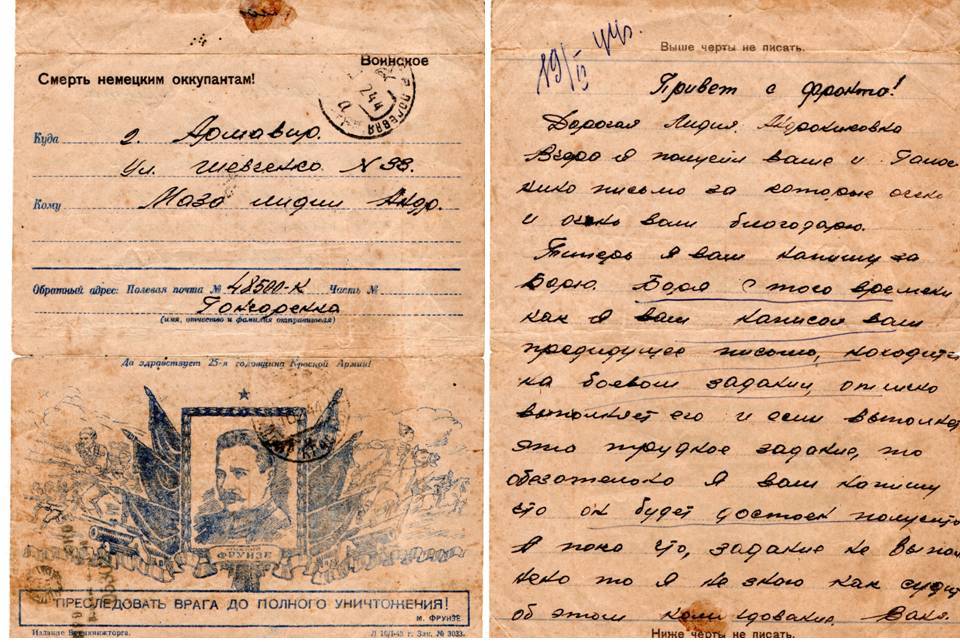 Воинское
Смерть немецким оккупантам!
Куда г. Армавир.
ул. Шевченко №38.
Кому Мазо Лидии Андр.
Обратный адрес: Полевая почта № 48500-К Часть №
Гончаренко
(имя, отчество и фамилия отправителя)
Да здравствует 25-я годовщина Красной Армии!
ФРУНЗЕ
ПРЕСЛЕДОВАТЬ ВРАГА ДО ПОЛНОГО УНИЧТОЖЕНИЯ!
М. ФРУНЗЕ
Издание Военкнижторга.
Зак. № 3033.
19/IV 44г.
Выше черты не писать.
Привет с фронта!
Дорогая Лидия
Вчера я получил ваше и
письмо за которые очень
и очень вам благодарю.
Типерь я вам напишу за
Борю. Боря с того времени
как я вам написал вам
предидущее письмо, находитя
на боевом задании, отлично
выполняет его и если выполнет
это трудное задание, то
обезательно я вам напишу
что он будет достоен получить
А пока что, задание не выпол
нено то я не знаю как судит
об этом командование. Ваня.
Ниже черты не писать.